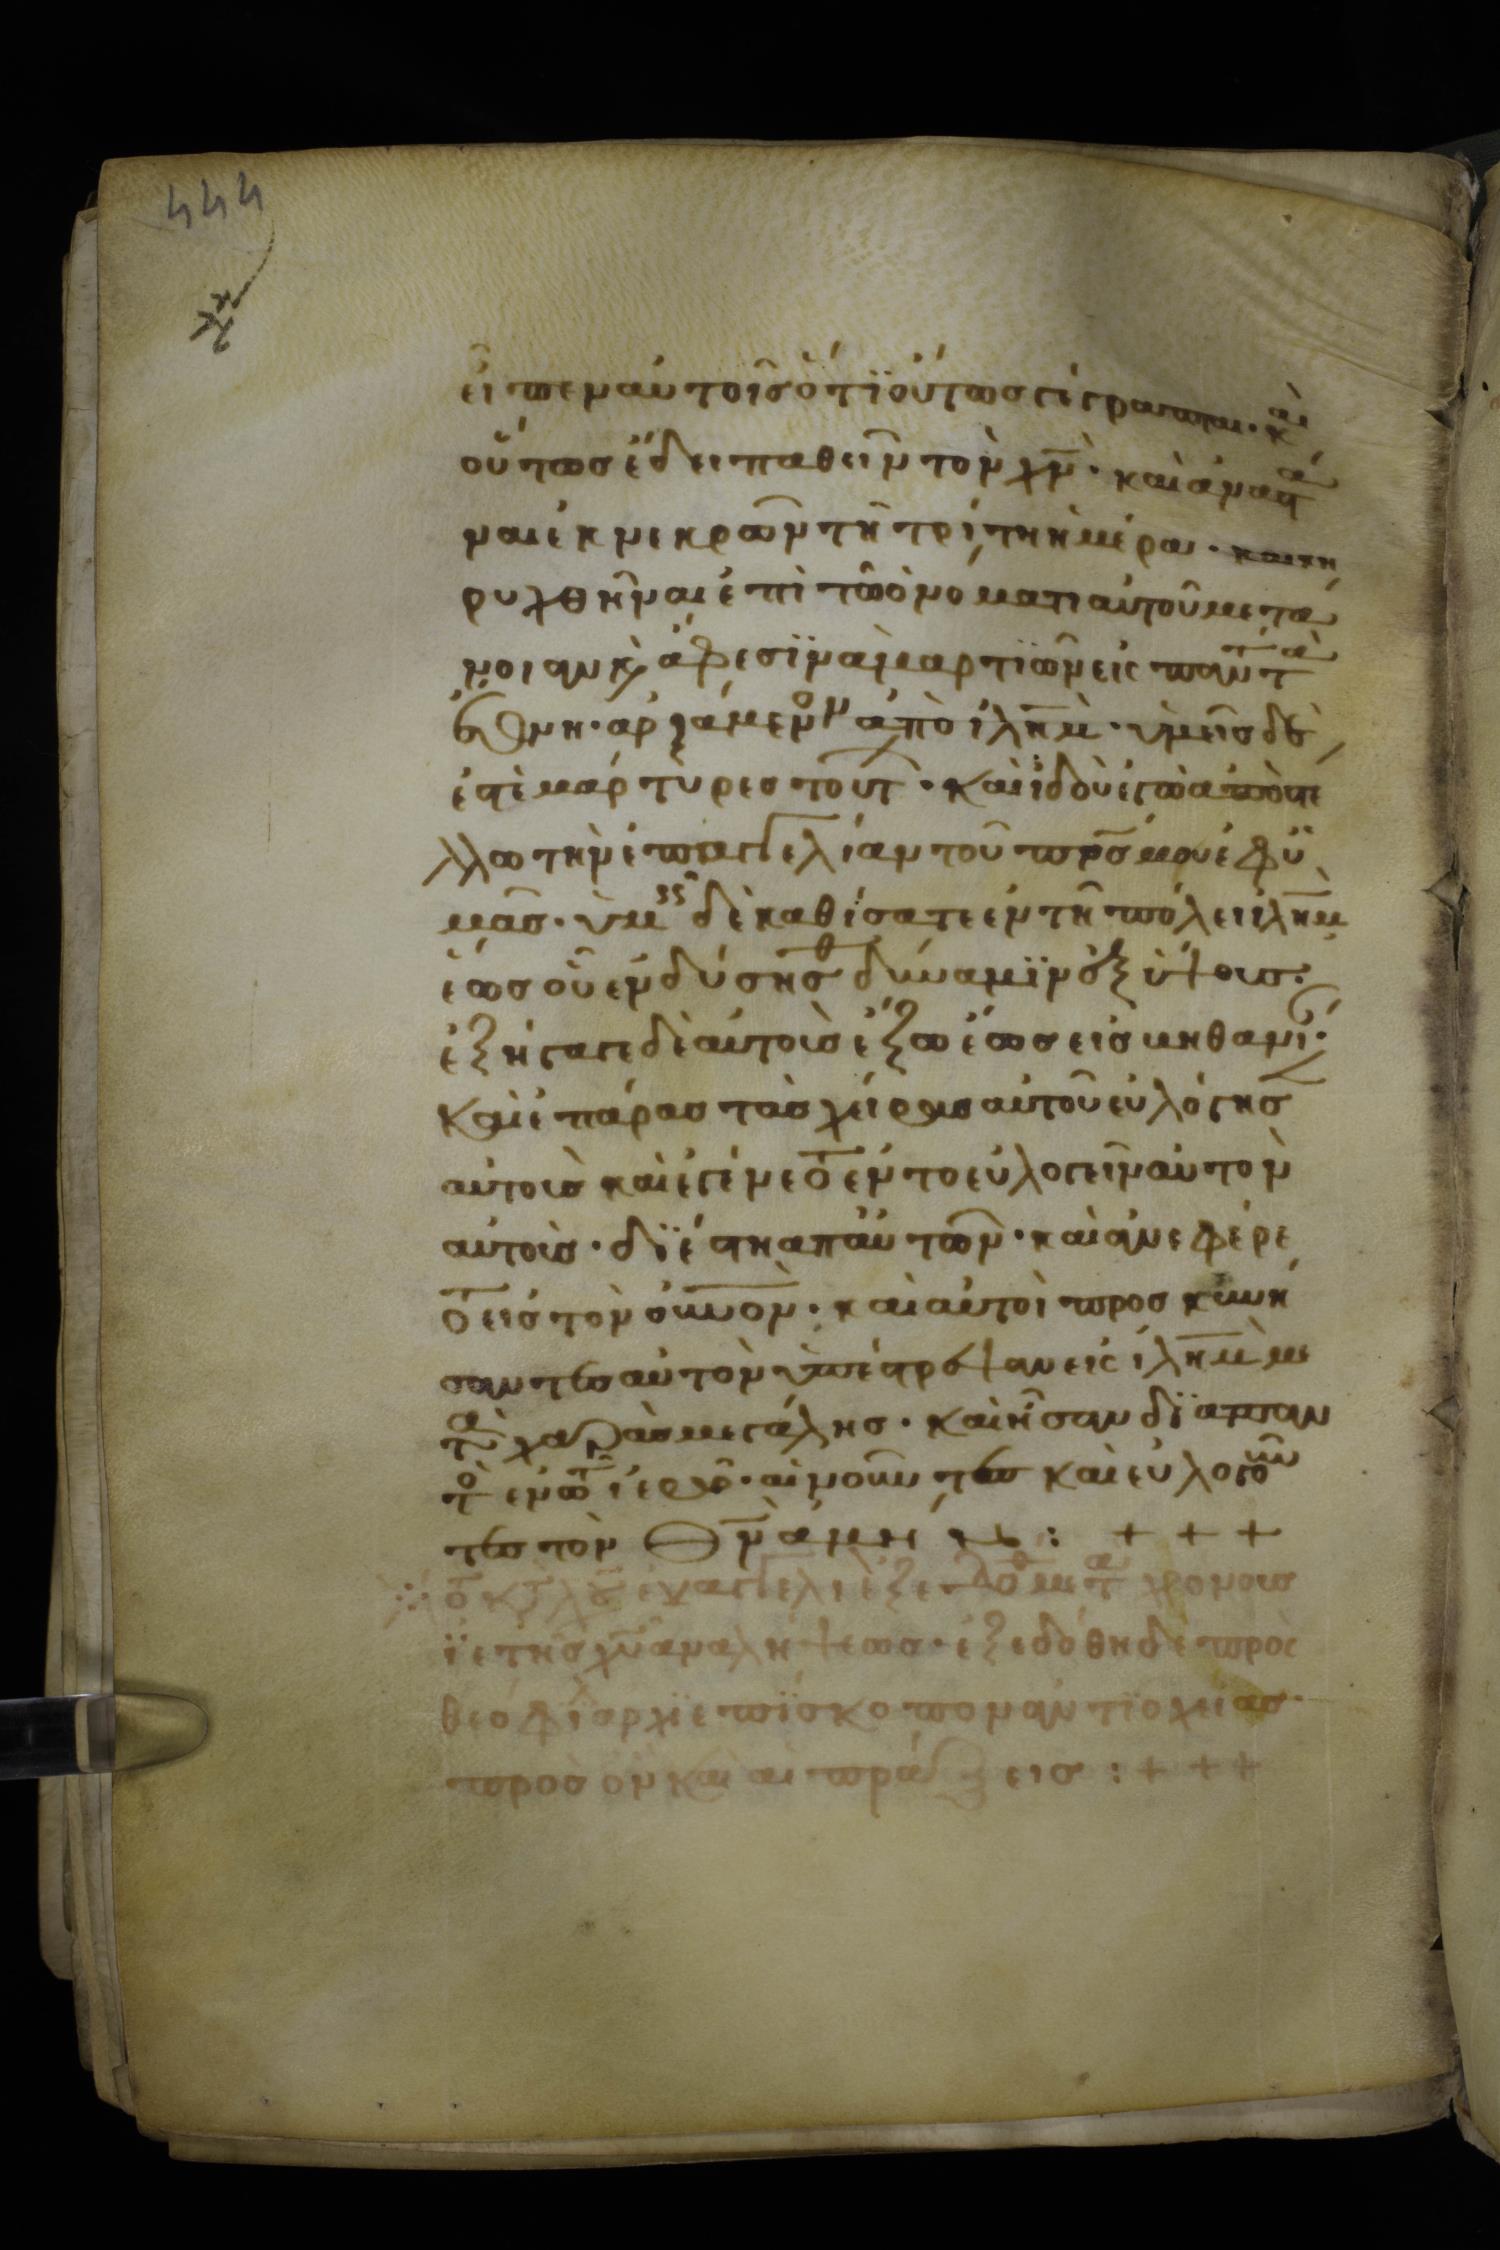 444
εἶπεν αὐτοῖς ὅτϊ οὕτως γέγραπται · κ(αὶ)
οὕτως ἔδει παθεῖν τὸν χ̅ν̅ · καὶ ἀναστῆ
ναι ἐκ νεκρῶν τῆ τρίτη ἡμέραι · καὶ κη
ρυχθῆναι ἐπὶ τῶ ὀνόματι αὐτοῦ μετά
νοιαν κ(αὶ) ἄφεσϊν ἁμαρτϊῶν εἰς πάντ(α) τ(ὰ)
ἔθνη · ἀρξάμενον ἀπὸ ἰλ̅η̅μ̅ · ὑμεῖς δέ
ἐστὲ μάρτυρες τούτ(ων) · καὶ ἰδοὺ ἐγὼ ἀποστέ
λλω τὴν ἐπαγγελίαν τοῦ π̅ρ̅ς̅ μου ἐφ ὑ
μᾶς · ὑμεῖς δὲ καθίσατε ἐν τῆ πόλει ἰλ̅η̅μ̅
ἕως οὗ ἐνδύσησθ(ε) δύναμϊν ἐξ ὕψους ·
ἐξήγαγε δὲ αὐτοὺς ἔξω ἕως εἰς βηθανί(αν) ·
καὶ ἐπάρας τὰς χεῖρας αὐτοῦ εὐλόγησ(εν)
αὐτοὺς καὶ ἐγένετ(ο) ἐν το εὐλογεῖν αὐτὸν
αὐτοὺς · δϊέστη ἀπ αὐτῶν · καὶ ἀνεφέρε
τ(ο) εἰς τὸν ο̅υ̅ν̅ο̅ν̅ · καὶ αὐτοὶ προσκυνή
σαντες αὐτὸν ὑπέστρεψαν εἰς ἰλ̅η̅μ̅ με
τὰ χαρᾶς μεγάλης · καὶ ἦσαν δϊαπαν
τὸ(ς) ἐν τῶ ἱερῶ · αἰνοῦντες καὶ εὐλογοῦν
τες τὸν θ̅ν̅ ἀμήν : + + +
τ(ὸ) κ(α)τ(ὰ) λουκ(ᾶν) εὐαγγέλι(ον) ἐξεδόθ(η) μετ(ὰ) χρόνους
ϊε τῆς χ̅υ̅ ἀναλήψεως · ἐξεδόθη δε προς
θεόφϊλ(ον) ἀρχϊεπϊσκοπον αντϊοχείας ·
πρὸς ὃν καὶ αἱ πράξεις : + + +